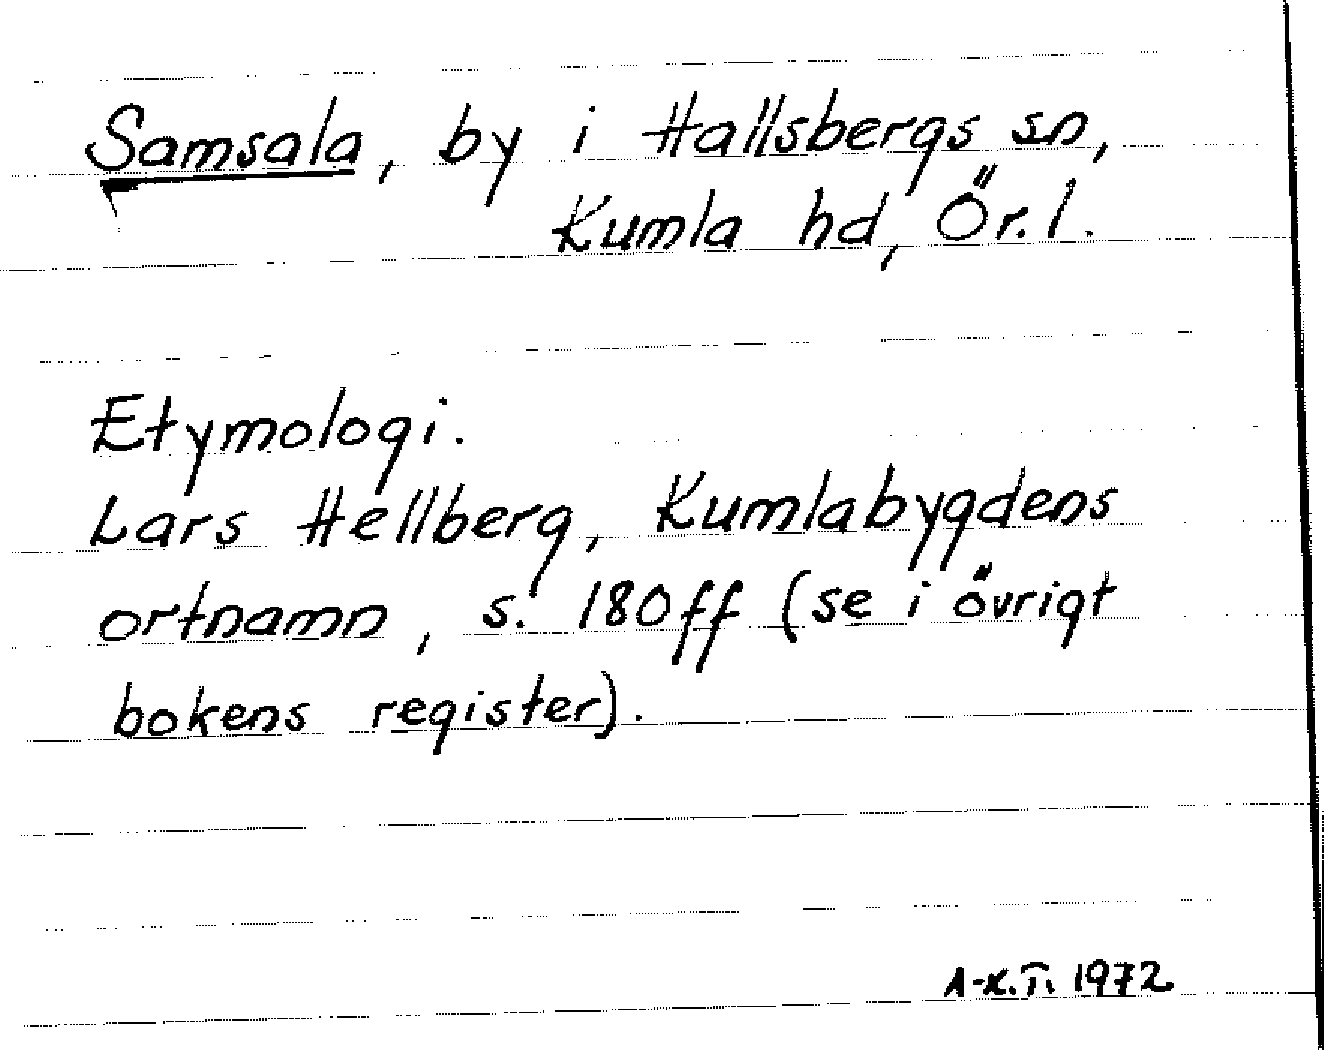 Samsala, by i Hallsbergs sn,
Kumla hd, Ör.l.
Etymologi.
Lars Hellberg, Kumlabygdens
ortnamn, s. 180ff (se i övrigt
bokens register).
A-K.T. 1972